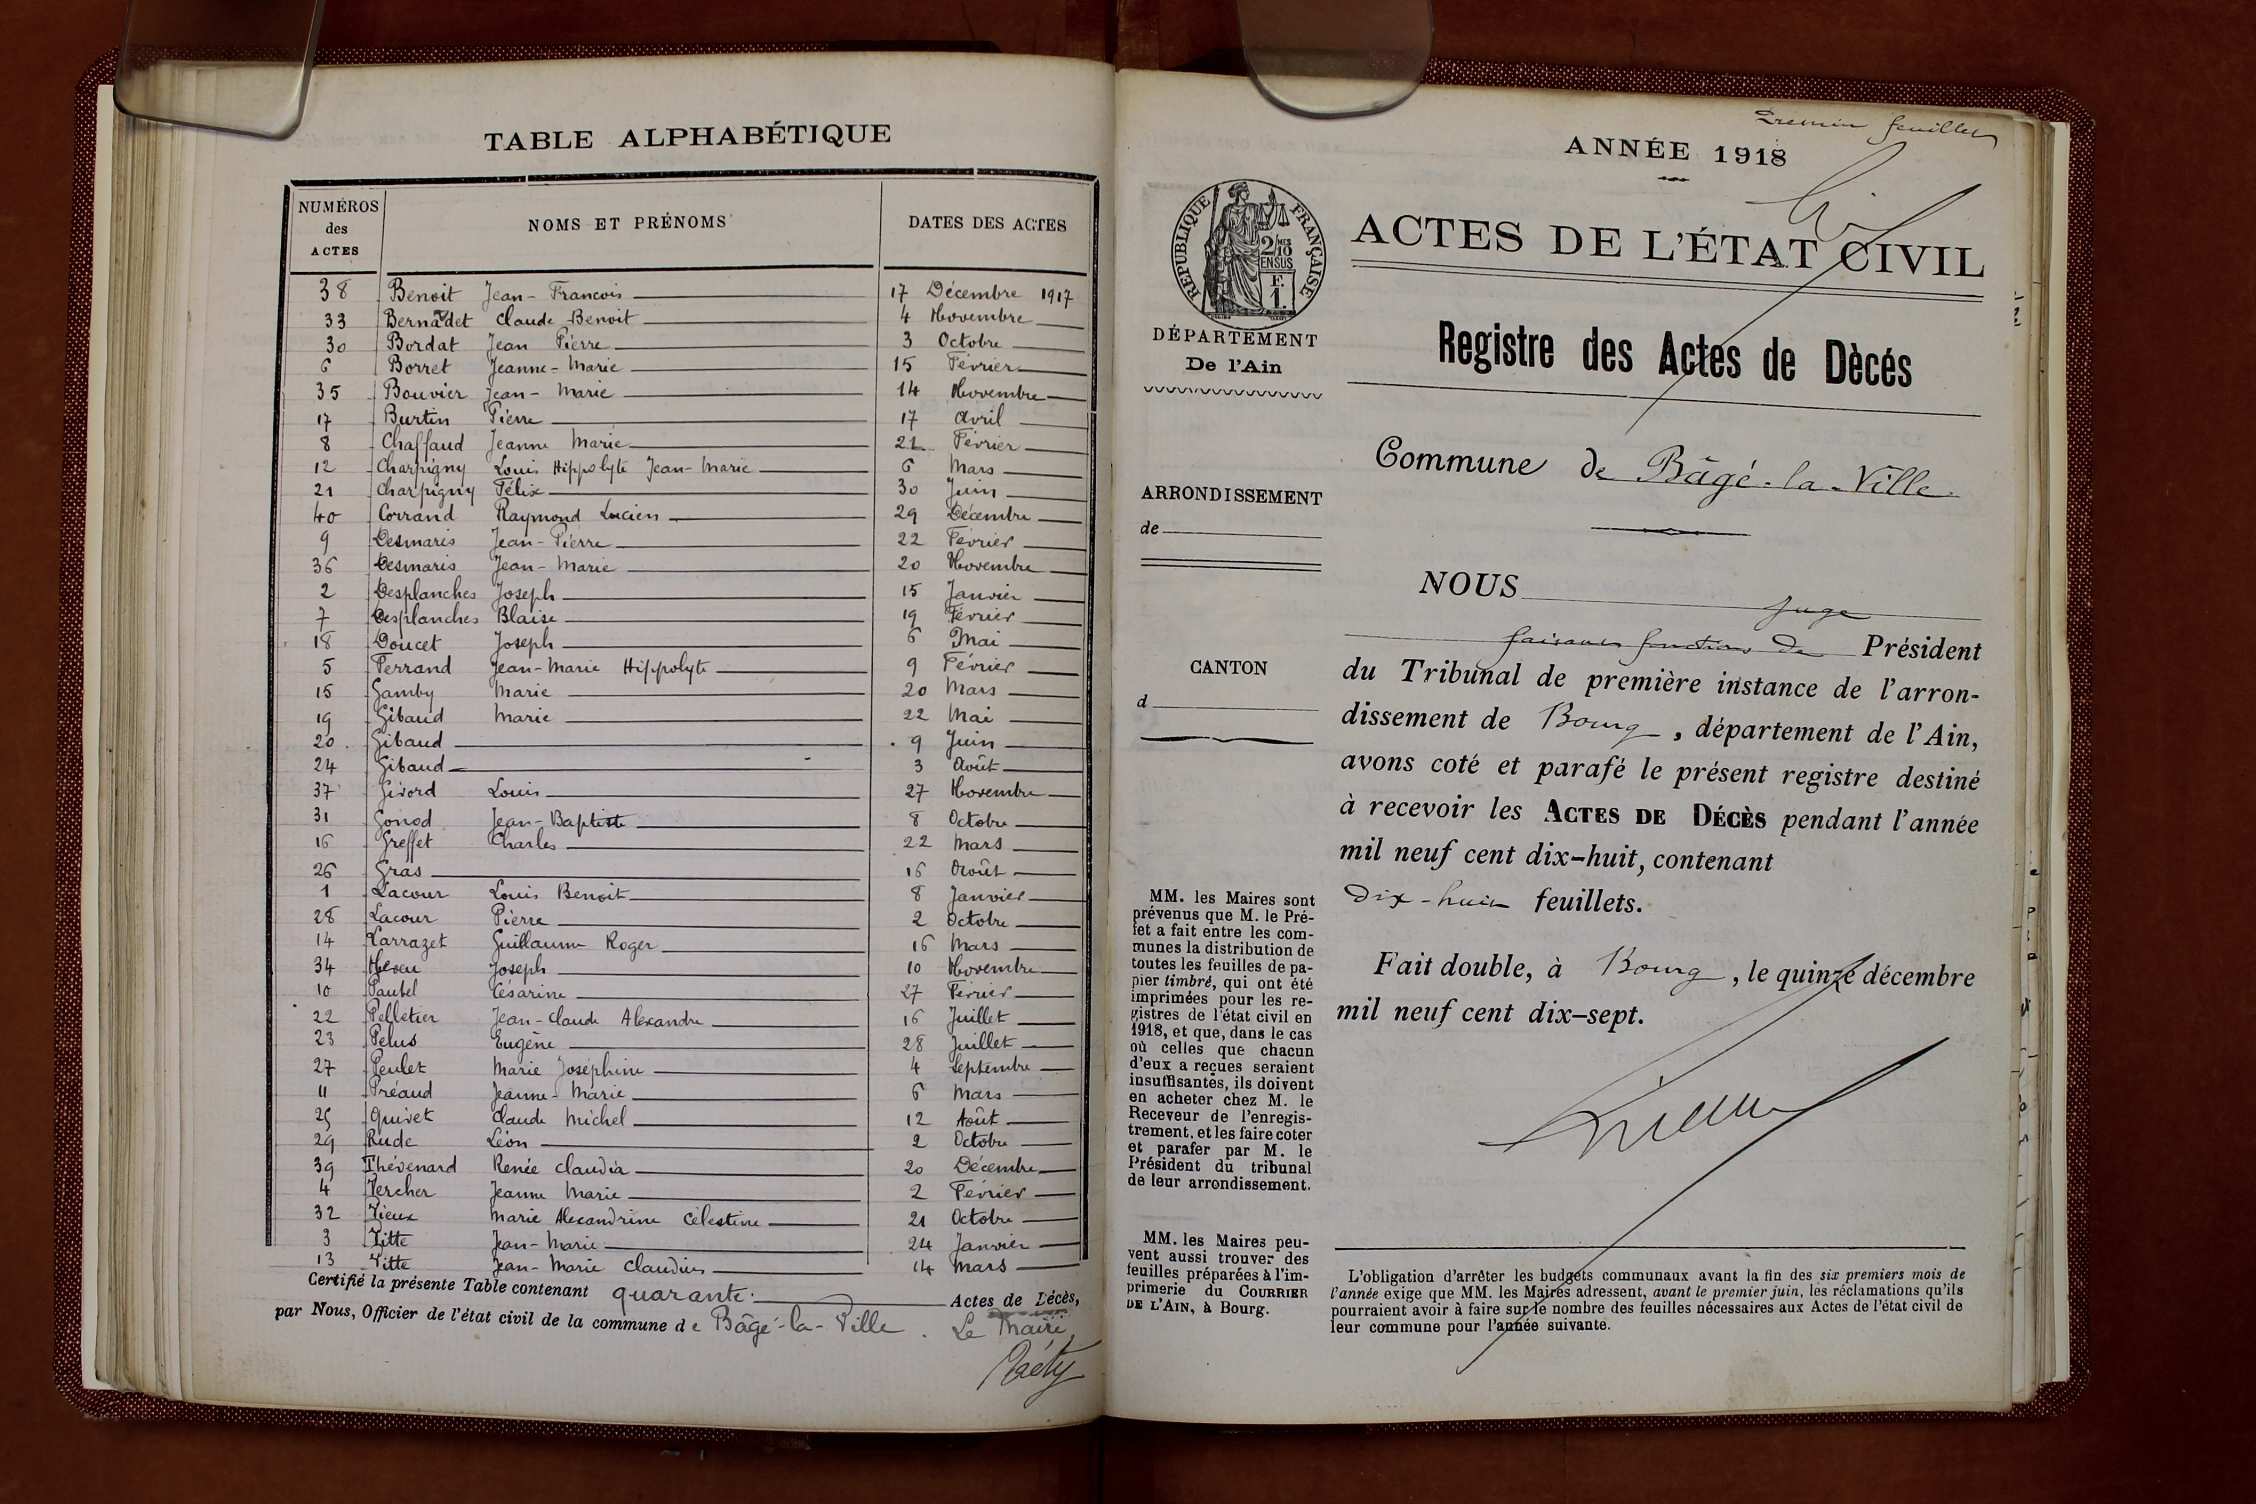 TABLE ALPHABÉTIQUE
NUMÉROS des ACTES NOMS ET PRÉNOMS DATES DES ACTES
38 Benoit Jean-Francois 17 Décembre 1917
33 Bernadet Claude Benoit 4 Novembre
30 Bordat Jean Pierre 3 Octobre
6 Borret Jeanne-Marie 15 Février
35 Bouvier Jean-Marie 14 Novembre
17 Burtin Pierre 17 Avril
8 Chaffaud Jeanne Marie 21 Février
12 Charpigny Louis Hippolyte Jean-Marie 6 Mars
21 Charpigny Félix 30 Juin
40 Corrand Raymond Lucien 29 Décembre
9 Desmaris Jean-Pierre 22 Février
36 Desmaris Jean-Marie 20 Novembre
2 Desplanches Joseph 15 Janvier
7 Desplanches Blaise 19 Février
18 Doucet Joseph 6 Mai
5 Ferrand Jean-Marie Hippolyte 9 Février
15 Gamby Marie 20 Mars
19 Gibaud Marie 22 Mai
20 Gibaud 9 Juin
24 Gibaud 3 Août
37 Givord Louis 27 Novembre
31 Gonod Jean-Baptiste 8 Octobre
16 Greffet Charles 22 Mars
26 Gras 16 Août
1 Lacour Louis Benoit 8 Janvier
28 Lacour Pierre 2 Octobre
14 Larrazet Guillaume Roger 16 Mars
34 Joseph 10 Novembre
10 Pautel Césarine 27 Février
22 Pelletier Jean-Claude Alexandre 16 Juillet
23 Pelus Eugène 28 Juillet
27 Peulet Marie Joséphine 4 Septembre
11 Préaud Jeanne-Marie 6 Mars
25 Quivet Claude Michel 12 Août
29 Rude Léon 2 Octobre
39 Thévenard Renée Claudia 20 Décembre
4 Vercher Jeanne Marie 2 Février
32 Vieux Marie Alexandrine Célestine 21 Octobre
3 Vitte Jean-Marie 24 Janvier
13 Vitte Jean-Marie Claudius 14 Mars
Certifié la présente Table contenant quarante Actes de Décès,
par Nous, Officier de l'état civil de la commune de Bâgé-la-Ville. Le Maire
Premier feuillet
ANNÉE 1918
RÉPUBLIQUE FRANÇAISE
2/10 MES
EN SUS
F.
1.
ACTES DE L'ÉTAT CIVIL
DÉPARTEMENT
De l'Ain
Registre des Actes de Dècés
Commune de Bâgé-la-Ville.
ARRONDISSEMENT
de
CANTON
d
NOUS juge
faisant fonctions de Président
du Tribunal de première instance de l'arron-
dissement de Bourg, département de l'Ain,
avons coté et parafé le présent registre destiné
à recevoir les ACTES DE DÉCÈS pendant l'année
mil neuf cent dix-huit, contenant
dix-huit feuillets.
Fait double, à Bourg, le quinze décembre
mil neuf cent dix-sept.
MM. les Maires sont
prévenus que M. le Pré-
fet a fait entre les com-
munes la distribution de
toutes les feuilles de pa-
pier timbré, qui ont été
imprimées pour les re-
gistres de l'état civil en
1918, et que, dans le cas
où celles que chacun
d'eux a reçues seraient
insuffisantes, ils doivent
en acheter chez M. le
Receveur de l'enregis-
trement, et les faire coter
et parafer par M. le
Président du tribunal
de leur arrondissement.
MM. les Maires peu-
vent aussi trouver des
feuilles préparées à l'im-
primerie du COURRIER
DE L'AIN, à Bourg.
L'obligation d'arrêter les budgets communaux avant la fin des six premiers mois de
l'année exige que MM. les Maires adressent, avant le premier juin, les réclamations qu'ils
pourraient avoir à faire sur le nombre des feuilles nécessaires aux Actes de l'état civil de
leur commune pour l'année suivante.